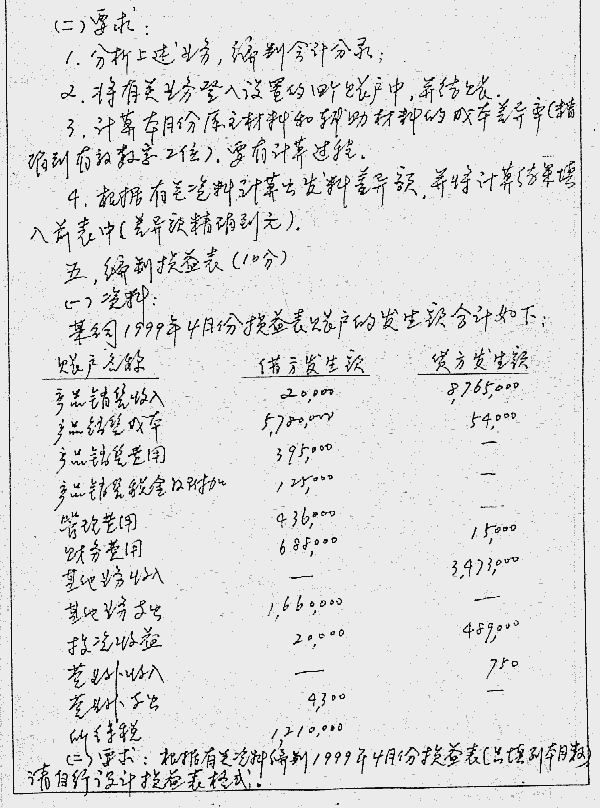 (二)要求:
1. 分析上述业务,编制会计分录;
2. 将有关业务登入设置的四个账户中,并结账.
3. 计算本月份原主材料和辅助材料的成本差异率(精
确到有效数字2位).要有计算过程.
4. 根据有关资料计算出发料差异额,并将计算结果填
入前表中(差异额精确到元).
五、编制损益表(10分)
(一)资料:
某公司1999年4月份损益表账户的发生额合计如下:
账户名称 借方发生额 贷方发生额
产品销售收入 20,000 8,765,000
产品销售成本 5,780,000 54,000
产品销售费用 395,000 —
产品销售税金及附加 125,000 —
管理费用 436,000 —
财务费用 688,000 15,000
其他业务收入 — 3,473,000
其他业务支出 1,660,000 —
投资收益 20,000 489,000
营业外收入 — 750
营业外支出 4,300 —
所得税 1,210,000
(二)要求:根据有关资料编制1999年4月份损益表(只填列本月数)
请自行设计损益表格式.